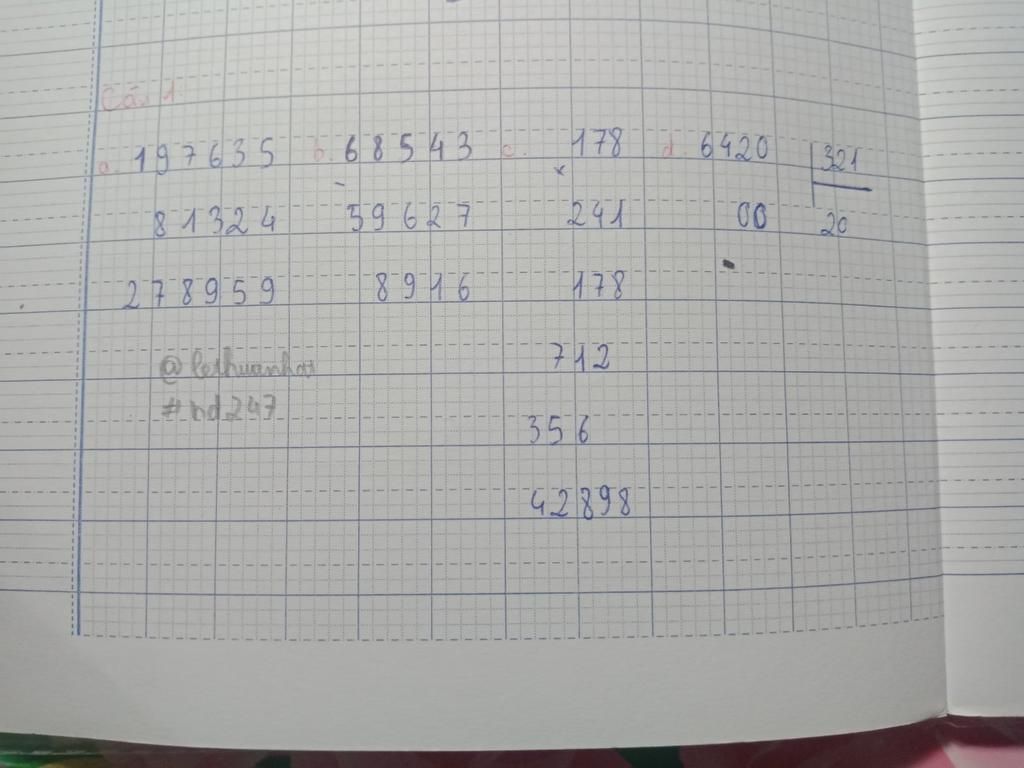 Câu 1:
a. 197635 b. 68543 c. 178 d. 6420 321
- x
81324 59627 241 00 20
278959 8916 178
712
#hd247
356
42898